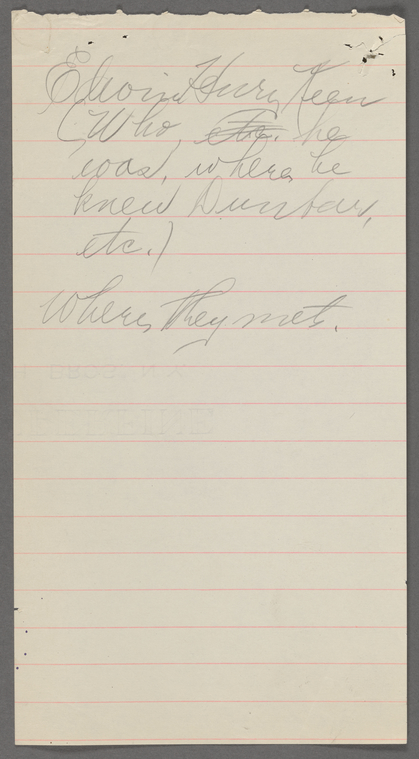 Edwin Henry Keen
(Who, etc. he
was, where he
knew Dunbar,
etc.)
Where they met.